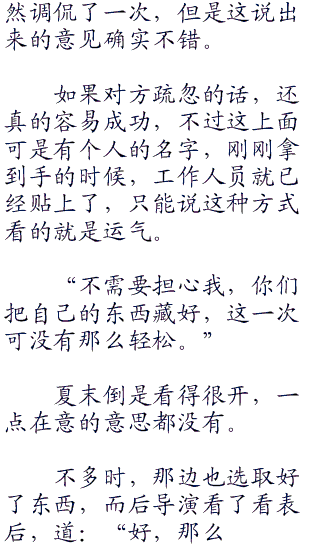 然调侃了一次，但是这说出
来的意见确实不错。
如果对方疏忽的话，还
真的容易成功，不过这上面
可是有个人的名字，刚刚拿
到手的时候，工作人员就已
经贴上了，只能说这种方式
看的就是运气。
“不需要担心我，你们
把自己的东西藏好，这一次
可没有那么轻松。”
夏末倒是看得很开，一
点在意的意思都没有。
不多时，那边也选取好
了东西，而后导演看了看表
后，道：“好，那么